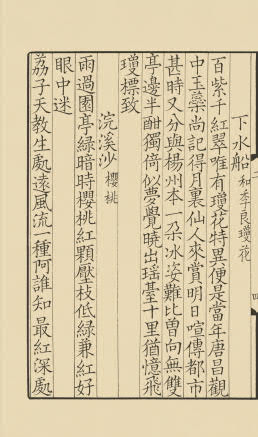 下水船 和季良瓊花
百紫千紅翠唯有瓊花特異便是當年唐昌觀
中玉蘂尚記得月裏仙人來賞明日喧傳都市
甚時又分與楊州本一朶冰姿難比曾向無雙
亭邊半酣獨倚似夢覺曉出瑶臺十里猶憶飛
瓊標致
浣溪沙 櫻桃
雨過園亭綠暗時櫻桃紅顆壓枝低綠兼紅好
眼中迷
荔子天教生處遠風流一種阿誰知最紅深處